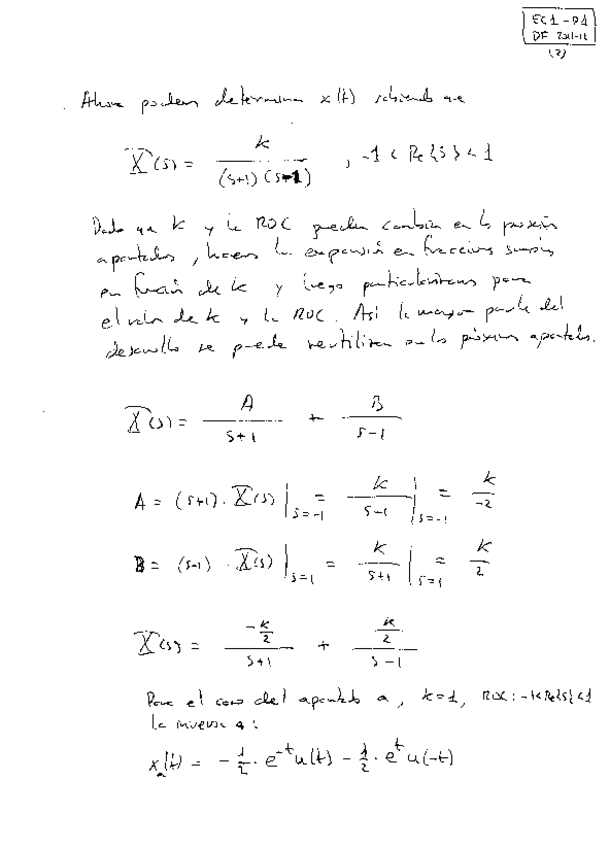 EC1-P1
DF 2011-12
(2)
Ahora podemos determinar x(t) sabiendo que
X(s) = k / (s+1)(s-1) , -1 < Re{s} < 1
Dado que k y la ROC pueden cambiar en los próximos
apartados, hacemos la expansión en fracciones simples
en función de k y luego particularizamos para
el valor de k y la ROC. Así la mayor parte del
desarrollo se puede reutilizar en los próximos apartados.
X(s) = A / s+1 + B / s-1
A = (s+1) · X(s) |s=-1 = k / s-1 |s=-1 = k / -2
B = (s-1) · X(s) |s=1 = k / s+1 |s=1 = k / 2
X(s) = -k/2 / s+1 + k/2 / s-1
Para el caso del apartado a, k=1, ROC: -1<Re{s}<1
la inversa es:
xa(t) = -1/2 · e^-t u(t) - 1/2 · e^t u(-t)